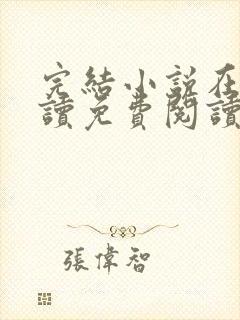 完結小說在
讀免費閱讀
張偉智